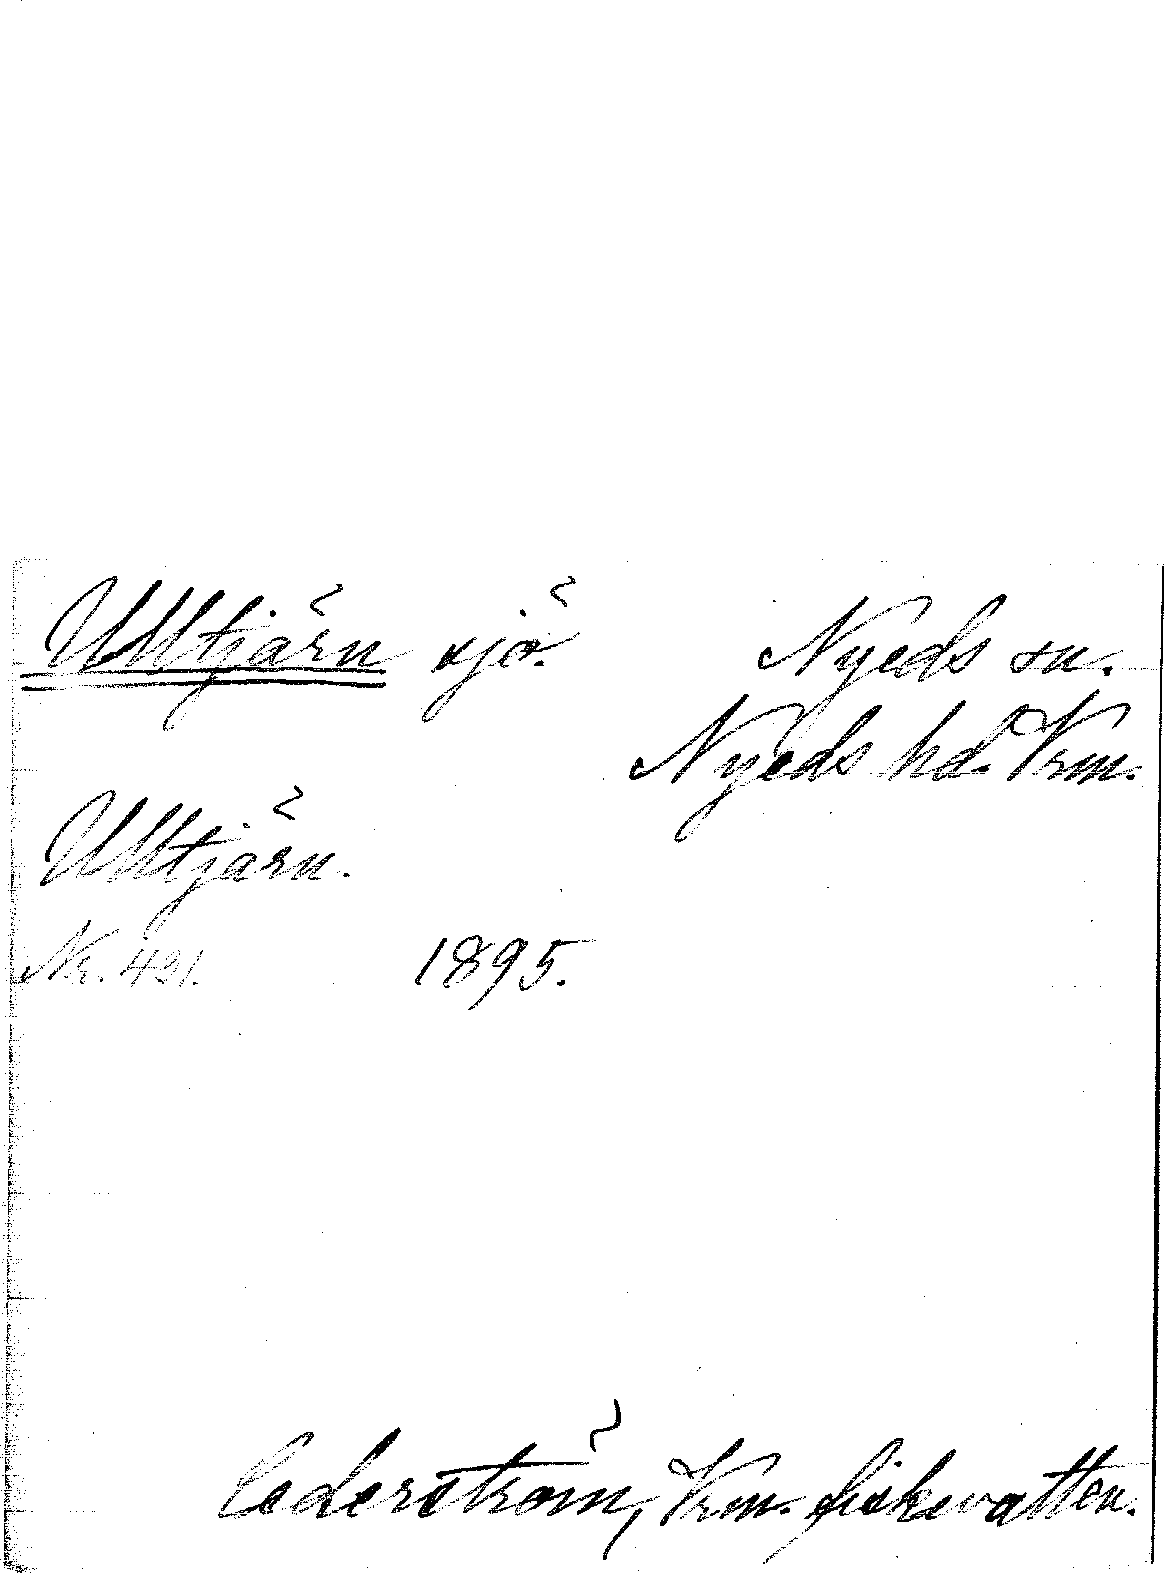 Ulltjärn sjö. Nyeds sn.
Nyeds hd. Vrm.
Ulltjärn.
Nr. 421. 1895.
Cederström, Vrm. fiskevatten.